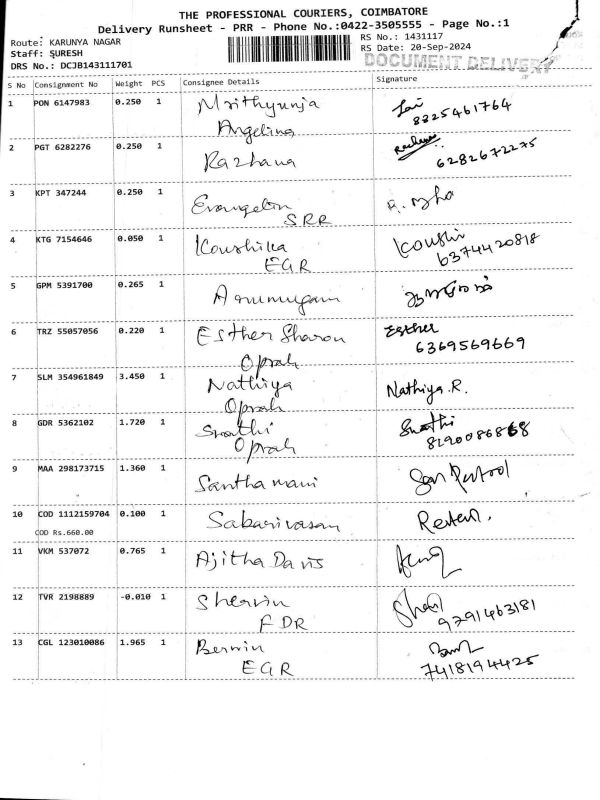 THE PROFESSIONAL COURIERS, COIMBATORE
Delivery Runsheet - PRR - Phone No.:0422-3505555 - Page No.:1
Route: KARUNYA NAGAR RS No.: 1431117
Staff: SURESH RS Date: 20-Sep-2024
DRS No.: DCJB143111701 DOCUMENT DELIVERY
S No Consignment No Weight PCS Consignee Details Signature
1 PON 6147983 0.250 1 Mrithyunja
Angelina 8325461764
2 PGT 6282276 0.250 1 Razhana 6282672275
3 KPT 347244 0.250 1 Evangelin
SRR
4 KTG 7154646 0.050 1 Koushika Koushi
EGR 6374420818
5 GPM 5391700 0.265 1 Arumugam
6 TRZ 55057056 0.220 1 Esther Sharon Esther
Oprah 6369569669
7 SLM 354961849 3.450 1 Nathiya Nathiya.R.
Oprah
8 GDR 5362102 1.720 1 Swathi Swathi
Oprah 8190086868
9 MAA 298173715 1.360 1 Santhamani
10 COD 1112159704 0.100 1 Sabarivasan
COD Rs.660.00
11 VKM 537072 0.765 1 Ajitha Davis
12 TVR 2198889 -0.010 1 Shervin
FDR 9791463181
13 CGL 123010086 1.965 1 Berwin
EGR 7418194425